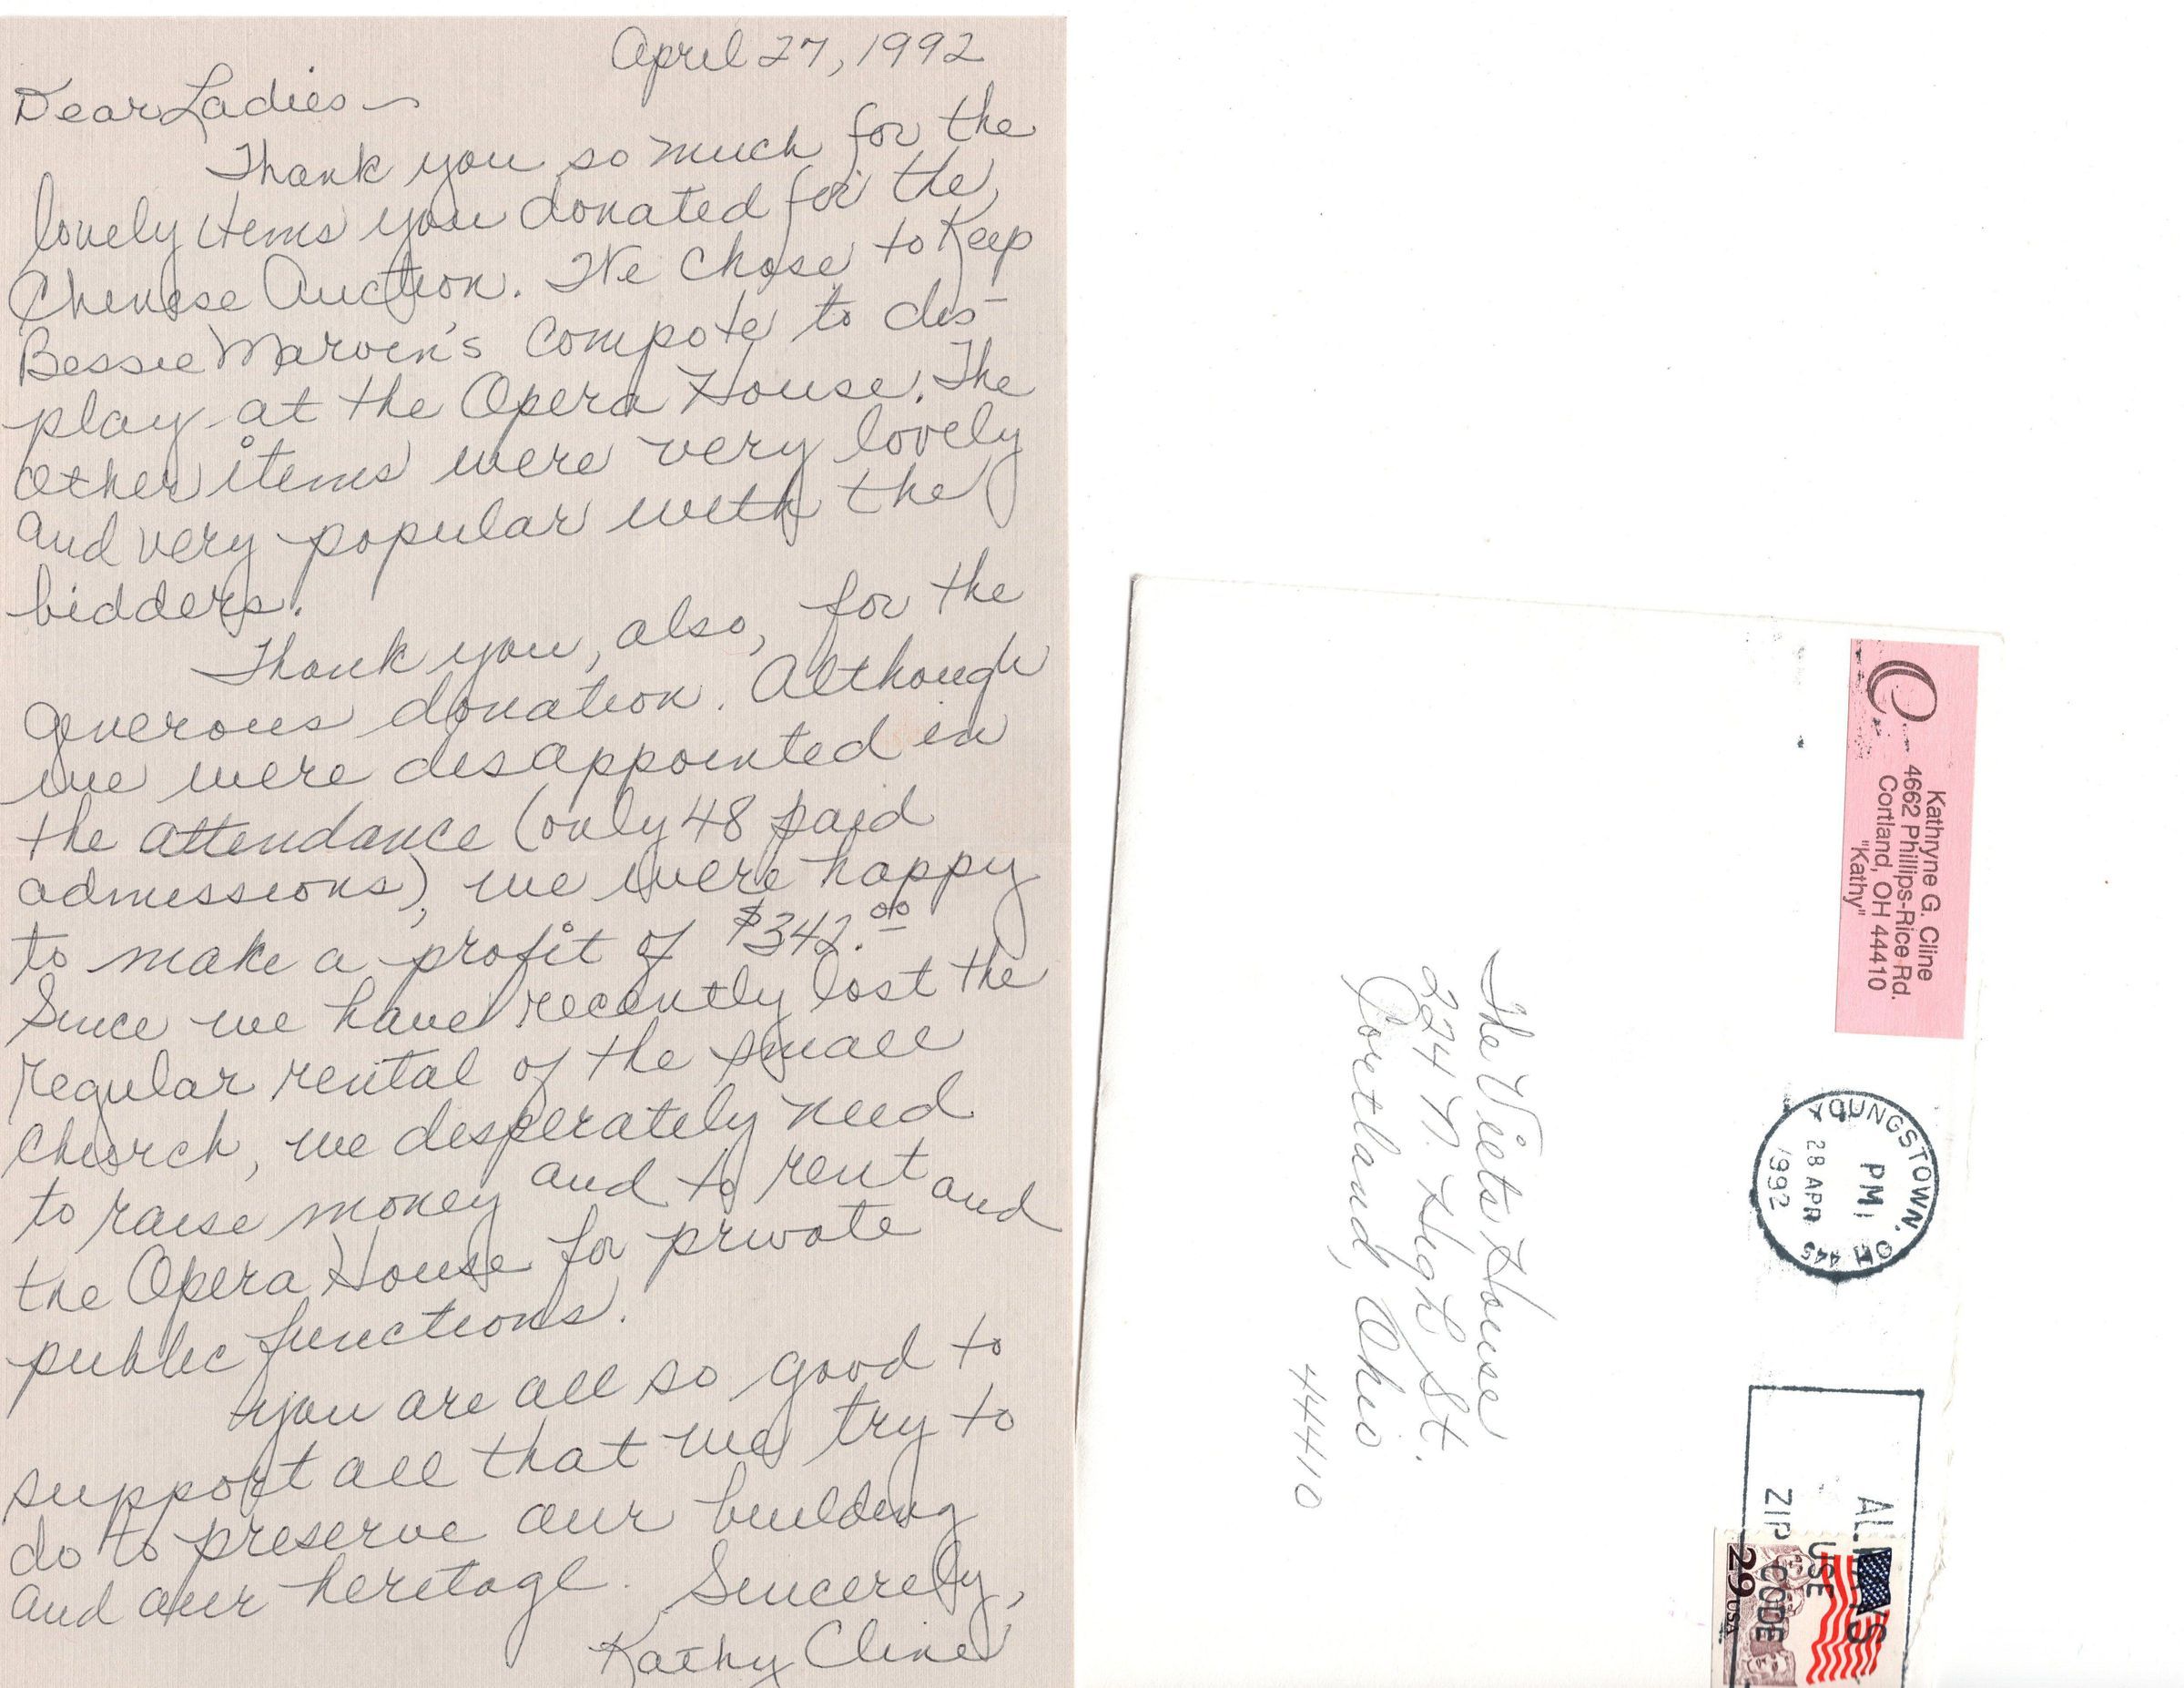 April 27, 1992
Dear Ladies—
Thank you so much for the
lovely items you donated for the
Chinese Auction. We chose to keep
Bessie Marvin's compote to dis-
play at the Opera House. The
other items were very lovely
and very popular with the
bidders.
Thank you, also, for the
generous donation. Although
we were disappointed in
the attendance (only 48 paid
admissions), we were happy
to make a profit of $342.00
Since we have recently lost the
regular rental of the small
church, we desperately need
to raise money and to rent
the Opera House for private and
public functions.
You are all so good to
support all that we try to
do to preserve our building
and our heritage. Sincerely,
Kathy Cline
C
Kathryne G. Cline
4662 Phillips-Rice Rd.
Cortland, OH 44410
"Kathy"
YOUNGSTOWN, OH 445
PM
28 APR
1992
ALWAYS
USE
ZIP CODE
29 USA
The Viets House
224 N. High St.
Cortland, Ohio
44410